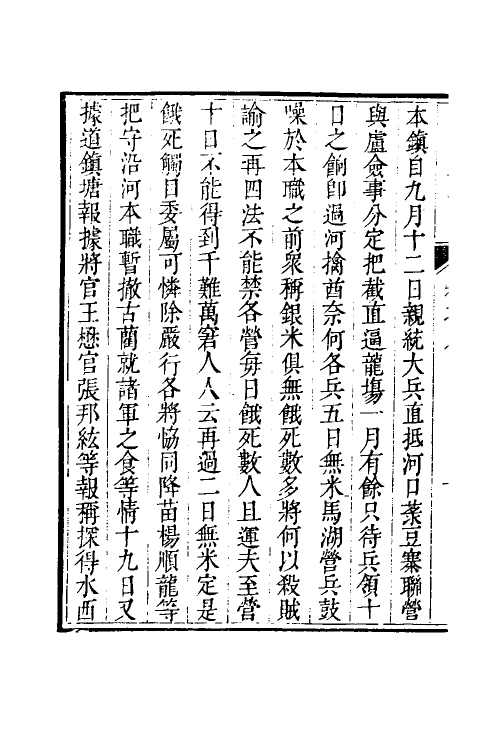 本鎮自九月十二日親統大兵直抵河口菉豆寨聯營
與盧僉事分定把截直逼龍塲一月有餘只待兵領十
日之餉即過河擒酋奈何各兵五日無米馬湖營兵鼓
噪於本職之前衆稱銀米俱無餓死數多將何以殺賊
諭之再四法不能禁各營每日餓死數人且運夫至營
十日不能得到千難萬窘人人云再過二日無米定是
餓死觸目委屬可憐除嚴行各將恊同降苗楊順龍等
把守沿河本職暫撤古藺就諸軍之食等情十九日又
據道鎮塘報據將官王懋官張邦紘等報稱探得水西